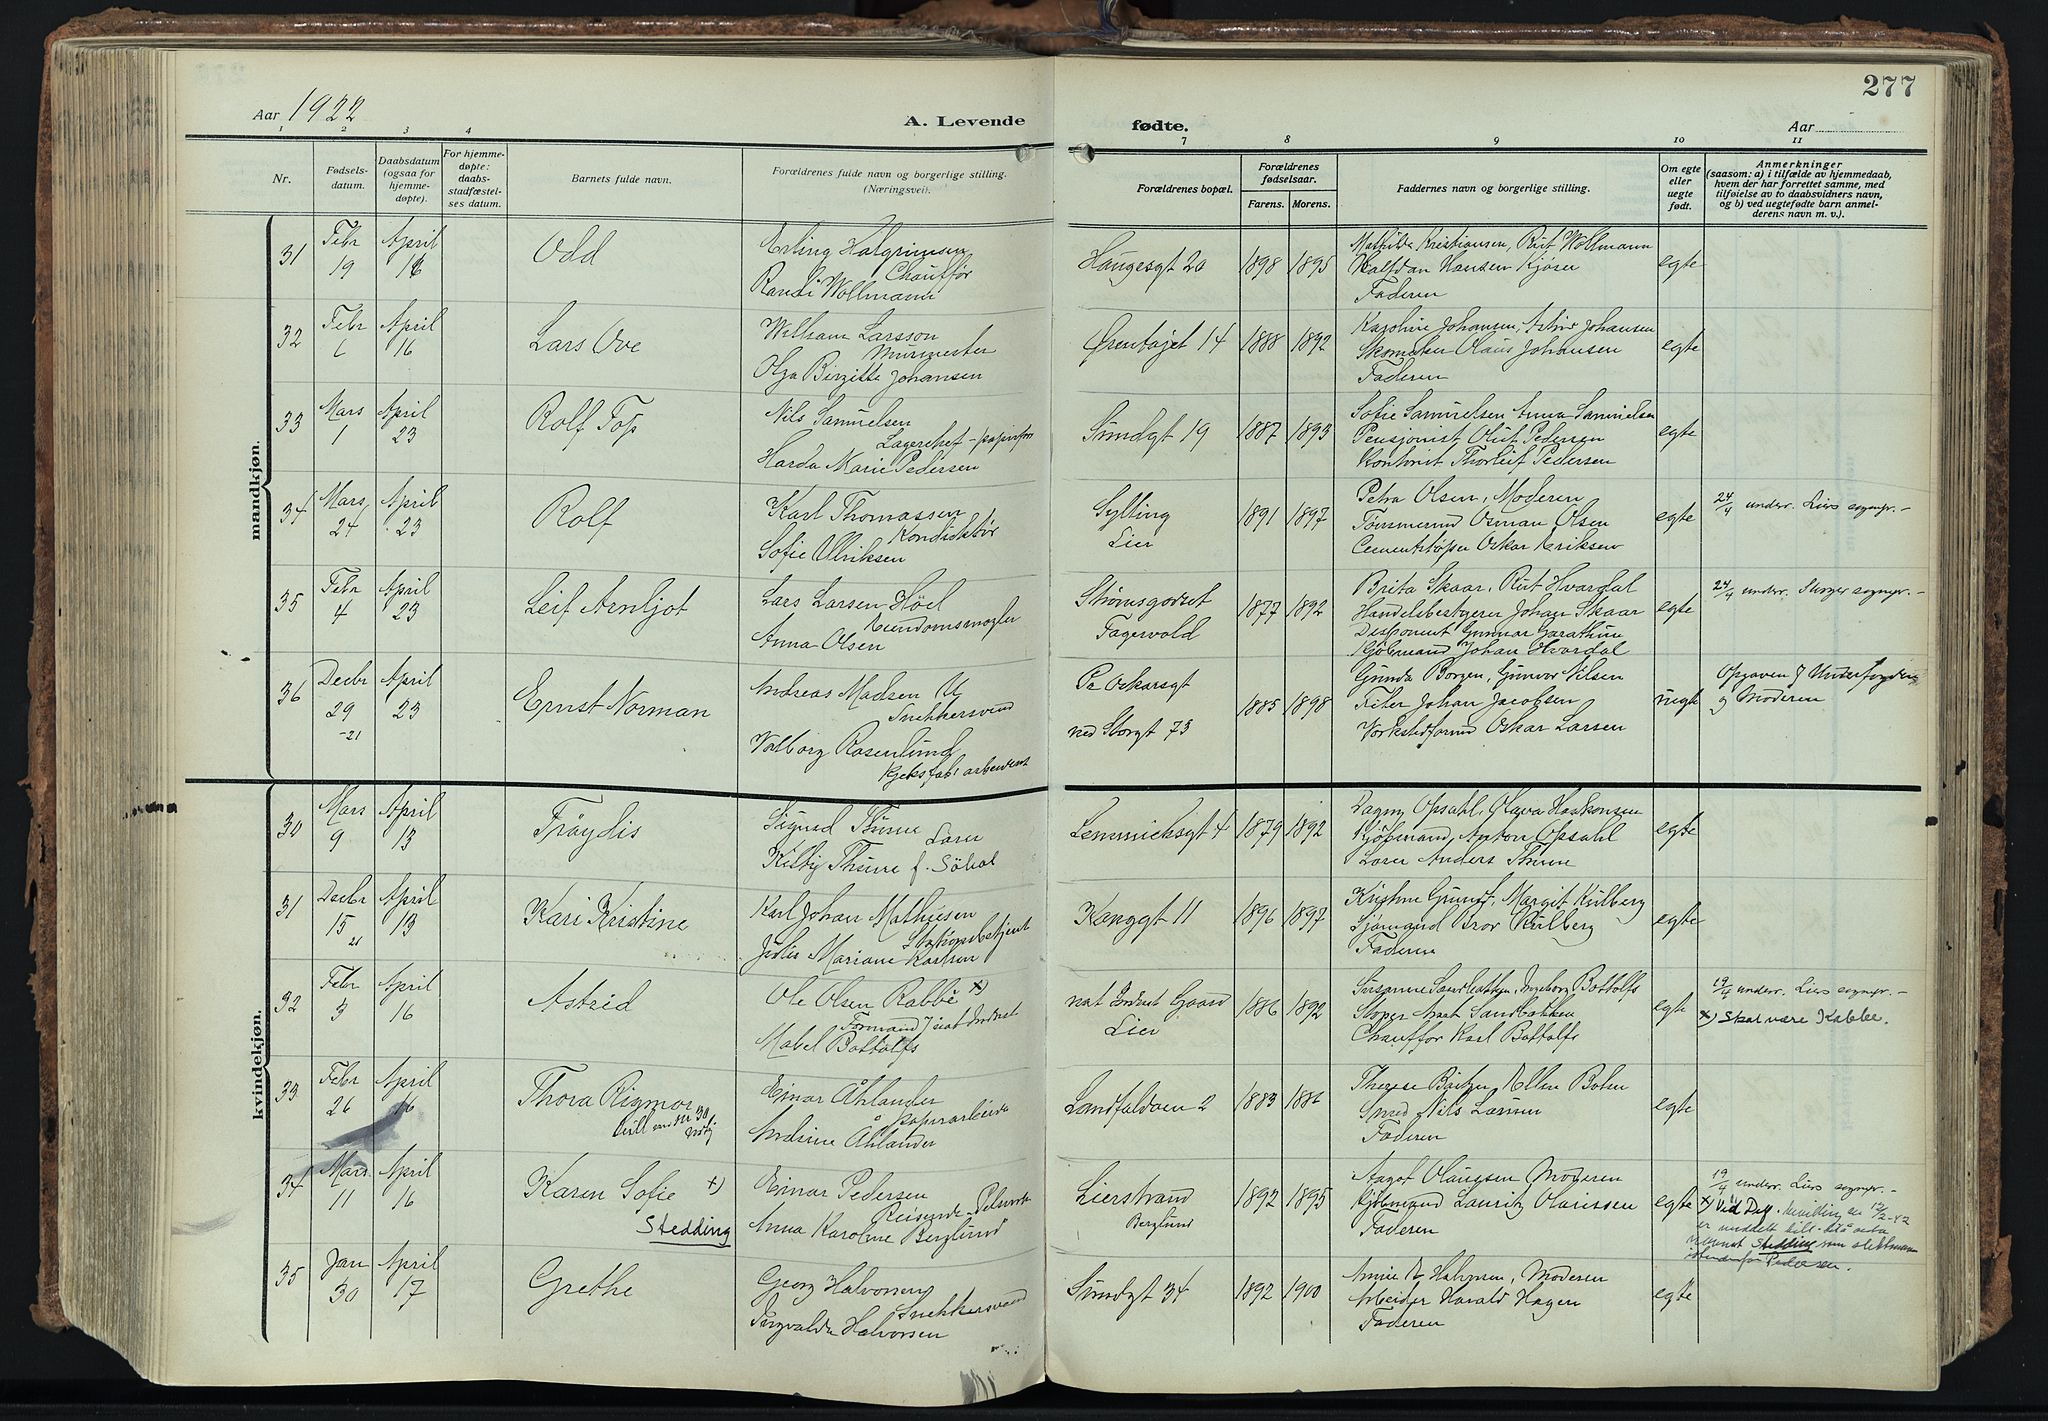 277
Aar 1922
A. Levende
fødte.
Aar
1 2 3 4 7 8 9 10 11
Nr.
Fødsels-
datum.
Daabsdatum
(ogsaa for
hjemme-
døpte).
For hjemme-
døpte:
daabs-
stadfæstel-
ses datum.
Barnets fulde navn.
Forældrenes fulde navn og borgerlige stilling.
(Næringsvei).
Forældrenes bopæl.
Forældrenes
fødselsaar.
Farens. Morens.
Faddernes navn og borgerlige stilling.
Om egte
eller
uegte
født.
Anmerkninger
(saasom: a) i tilfælde av hjemmedaab,
hvem der har forrettet samme, med
tilføielse av to daabsvidners navn,
og b) ved uegtefødte barn anmel-
derens navn m. v.).
mandkjøn.
31
Febr
19
April
16
Odd
Erling Halgrimsen
Chauffør
Randi Wollmann
Haugesgt 20
1898
1895
Mathilde Kristiansen, Rut Wollmann
Halfdan Hansen Kjøser
Faderen
egte
32
Febr
6
April
16
Lars Ove
William Larsson
Murmester
Olga Birgitte Johansen
Ørentøjet 14
1888
1892
Karoline Johansen, Johansen
Skomaker Olaus Johansen
Faderen
egte
33
Mars
1
April
23
Rolf Top
Nils Samuelsen
Lagerchef
Harda Marie Pedersen
Sundgt 19
1887
1893
Sofie Samuelsen Anna Samuelsen
Pensjonist Oluf Pedersen
Kontorist Thorleif Pedersen
egte
34
Mars
24
April
23
Rolf
Karl Thomassen
Konduktør
Sofie Ulriksen
Sylling
Lier
1891
1897
Petra Olsen, Moderen
Osman Olsen
Cementstøper Oskar Eriksen
egte
24/4 underr. Liers sognpr. -
35
Febr
4
April
23
Leif Arnljot
Lars Larsen Höel
Eiendomsmægler
Anna Olsen
Strömsgodset
Fagervold
1877
1892
Brita Skaar, Rut Hvardal
Handelsbestyrer Johan Skaar
Disponent Gunnar Garathun
Kjøbmand Johan Hvardal
egte
24/4 underr. sognpr. -
36
Decbr
29
-21
April
23
Ernst Norman
Andreas Madsen
Snekkersvend
Valborg Rosenlund
Kjeksfabr arbeiderst
Pr Oskarsgt
ned Storgt 73
1885
1898
Gunda Borgen, Gunvor Nilsen
Filer Johan Jacobsen
Verkstedformd Oskar Larsen
uegte
Opgaven f
og Moderen
kvindekjøn.
30
Mars
9
April
13
Fröydis
Sigurd Thune
Lærer
Kitby Thune f. Söhol
Lemmichsgt 4
1879
1892
Dagny Opsahl, Olava Haakonsen
Kjøbmand, Anton Opsahl
Lærer Anders Thune
egte
31
Decbr
15
21
April
13
Kari Kristine
Karl Johan Mathiesen
Stasjonsbetjent
Julie Mariane Karlsen
Konggt 11
1896
1897
Kristine Grundt, Margit Kulberg
Sjømand Bror Kulberg
Faderen
egte
32
Febr
3
April
16
Astrid
Ole Olsen Rabbe x)
Formand
Mabel Bottolfs
Gaard
Lier
1886
1892
Susanne Sandbakken, Ingeborg Bottolfs
Støper Sandbakken
Chauffør Karl Bottolfs
egte
19/4 underr. Liers sognpr. -
x) Skal være Kabbe.
33
Febr
26
April
16
Thora Rigmor
Einar Åhlander
Papirarbeider
Andrine Åhlander
Landfaldøen 2
1883
1886
Therese Ellen Bolen
Smed Nils Larsen
Faderen
egte
34
Mars
11
April
16
Karen Sofie x)
Stedding
Einar Pedersen
Reisende
Anna Karoline Berglund
Lierstrand
Berglund
1892
1895
Aagot Olaussen Moderen
Kjøbmand Lauritz Olaussen
Faderen
egte
19/4 underr. Liers sognpr. -
x) Ved Dep. bevilling av 12/2-42
er meddelt
Stedding som slektsnavn
istedenfor Pedersen.
35
Jan
30
April
17
Grethe
Georg Halvorsen
Snekkersvend
Ingvalda Halvorsen
Sundgt 34
1892
1900
Halvorsen, Moderen
Arbeider Harald Hagen
Faderen
egte